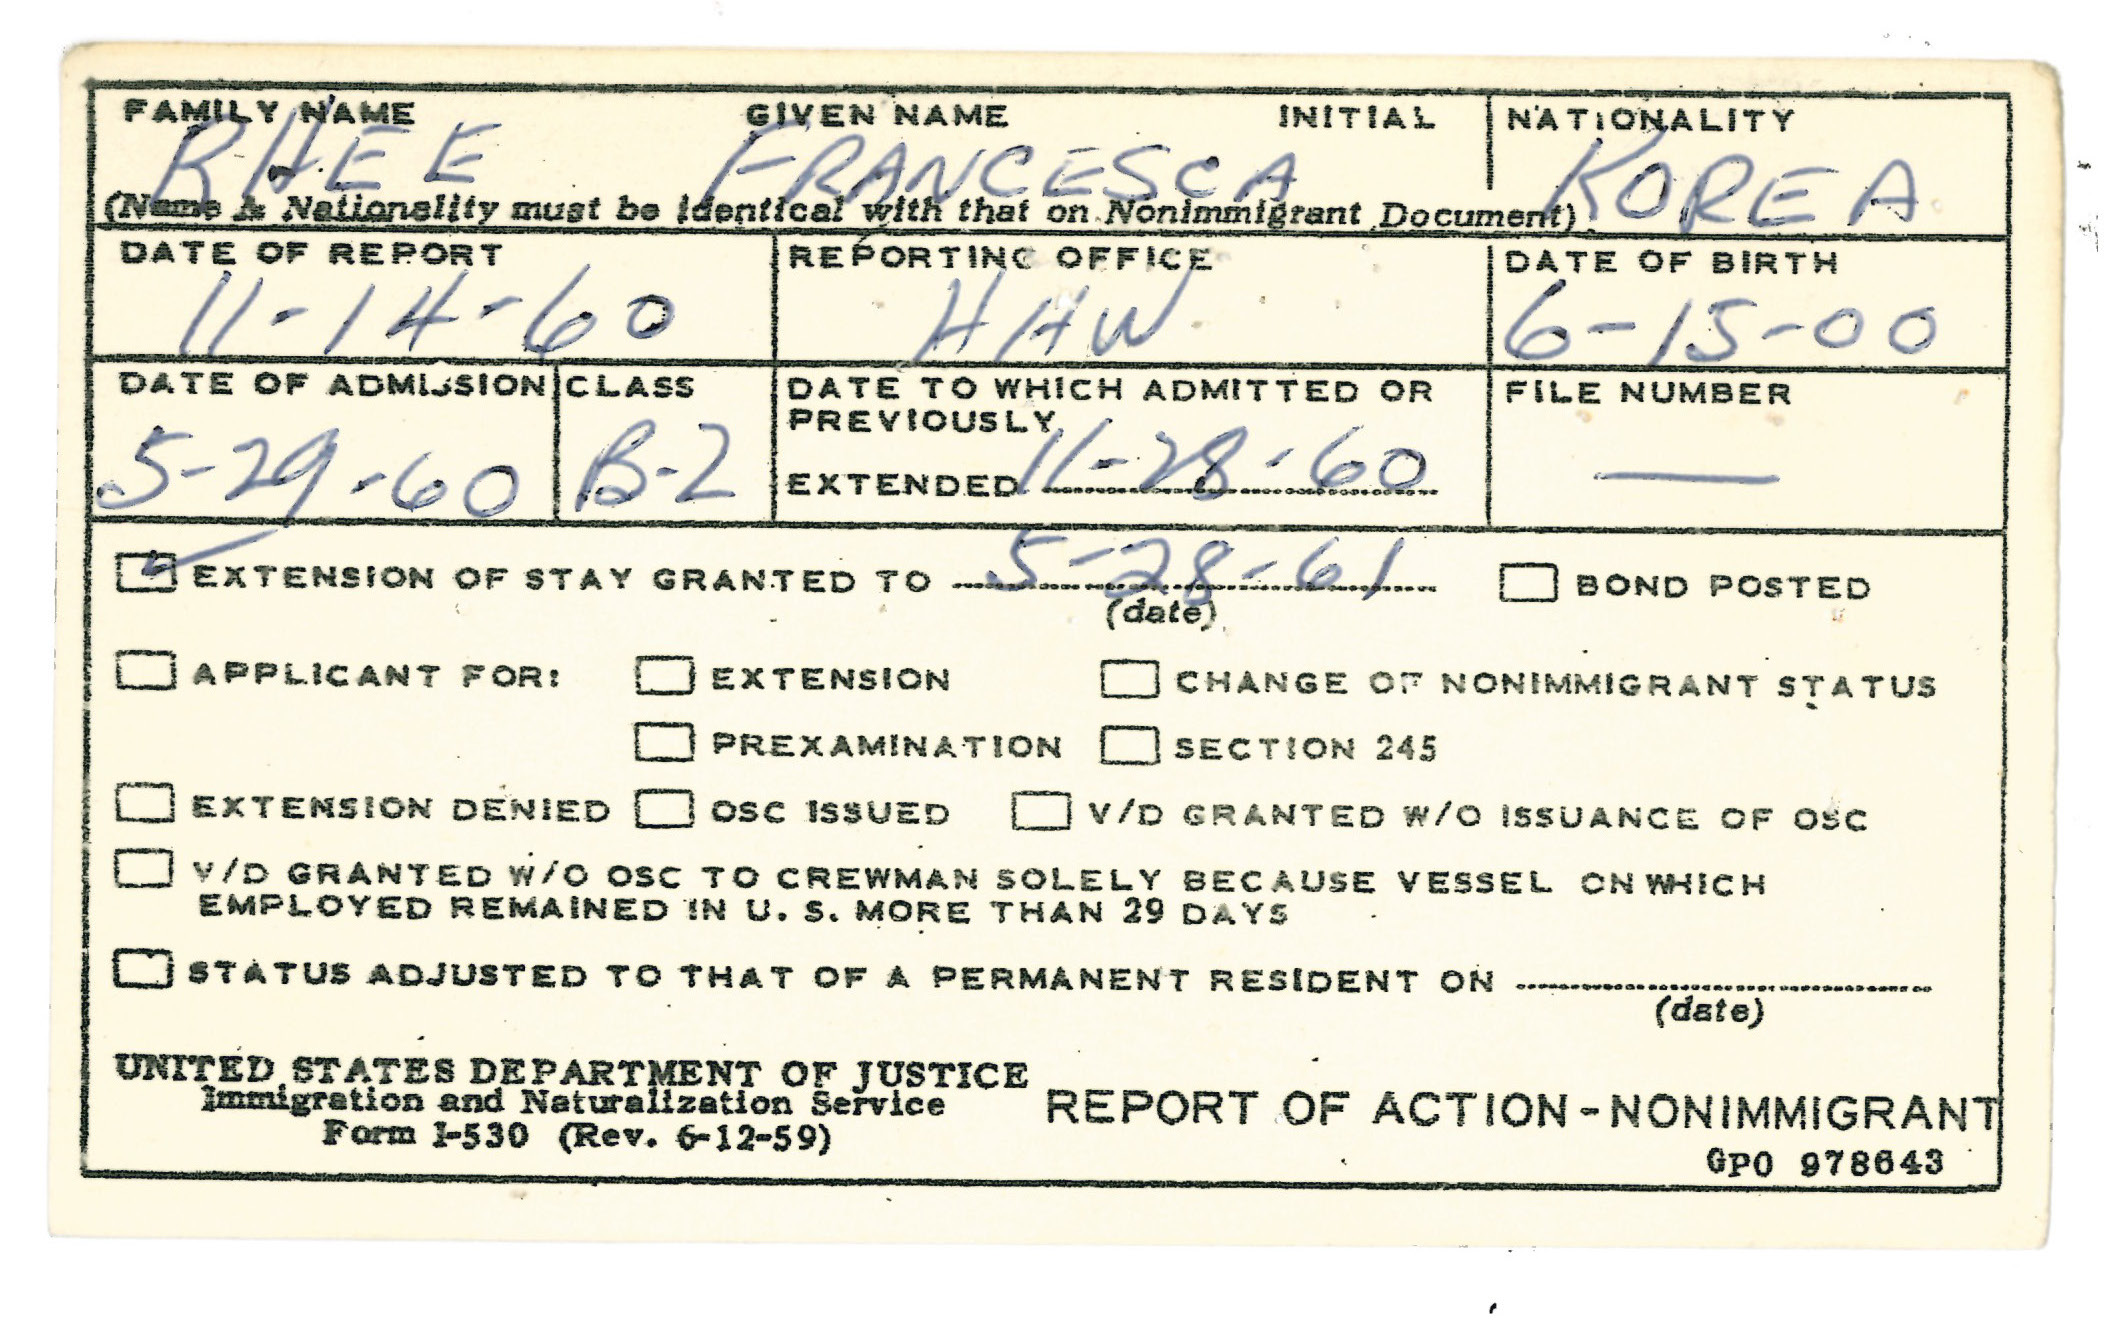 FAMILY NAME GIVEN NAME INITIAL NATIONALITY
RHEE FRANCESCA KOREA
(Name & Nationality must be identical with that on Nonimmigrant Document)
DATE OF REPORT REPORTING OFFICE DATE OF BIRTH
11-14-60 HHW 6-15-00
DATE OF ADMISSION CLASS DATE TO WHICH ADMITTED OR FILE NUMBER
PREVIOUSLY
5-29-60 B-2 EXTENDED 11-28-60 —
EXTENSION OF STAY GRANTED TO 5-28-61 BOND POSTED
(date)
APPLICANT FOR: EXTENSION CHANGE OF NONIMMIGRANT STATUS
PREXAMINATION SECTION 245
EXTENSION DENIED OSC ISSUED V/D GRANTED W/O ISSUANCE OF OSC
V/D GRANTED W/O OSC TO CREWMAN SOLELY BECAUSE VESSEL ON WHICH
EMPLOYED REMAINED IN U. S. MORE THAN 29 DAYS
STATUS ADJUSTED TO THAT OF A PERMANENT RESIDENT ON
(date)
UNITED STATES DEPARTMENT OF JUSTICE
Immigration and Naturalization Service
REPORT OF ACTION-NONIMMIGRANT
Form I-530 (Rev. 6-12-59)
GPO 978643